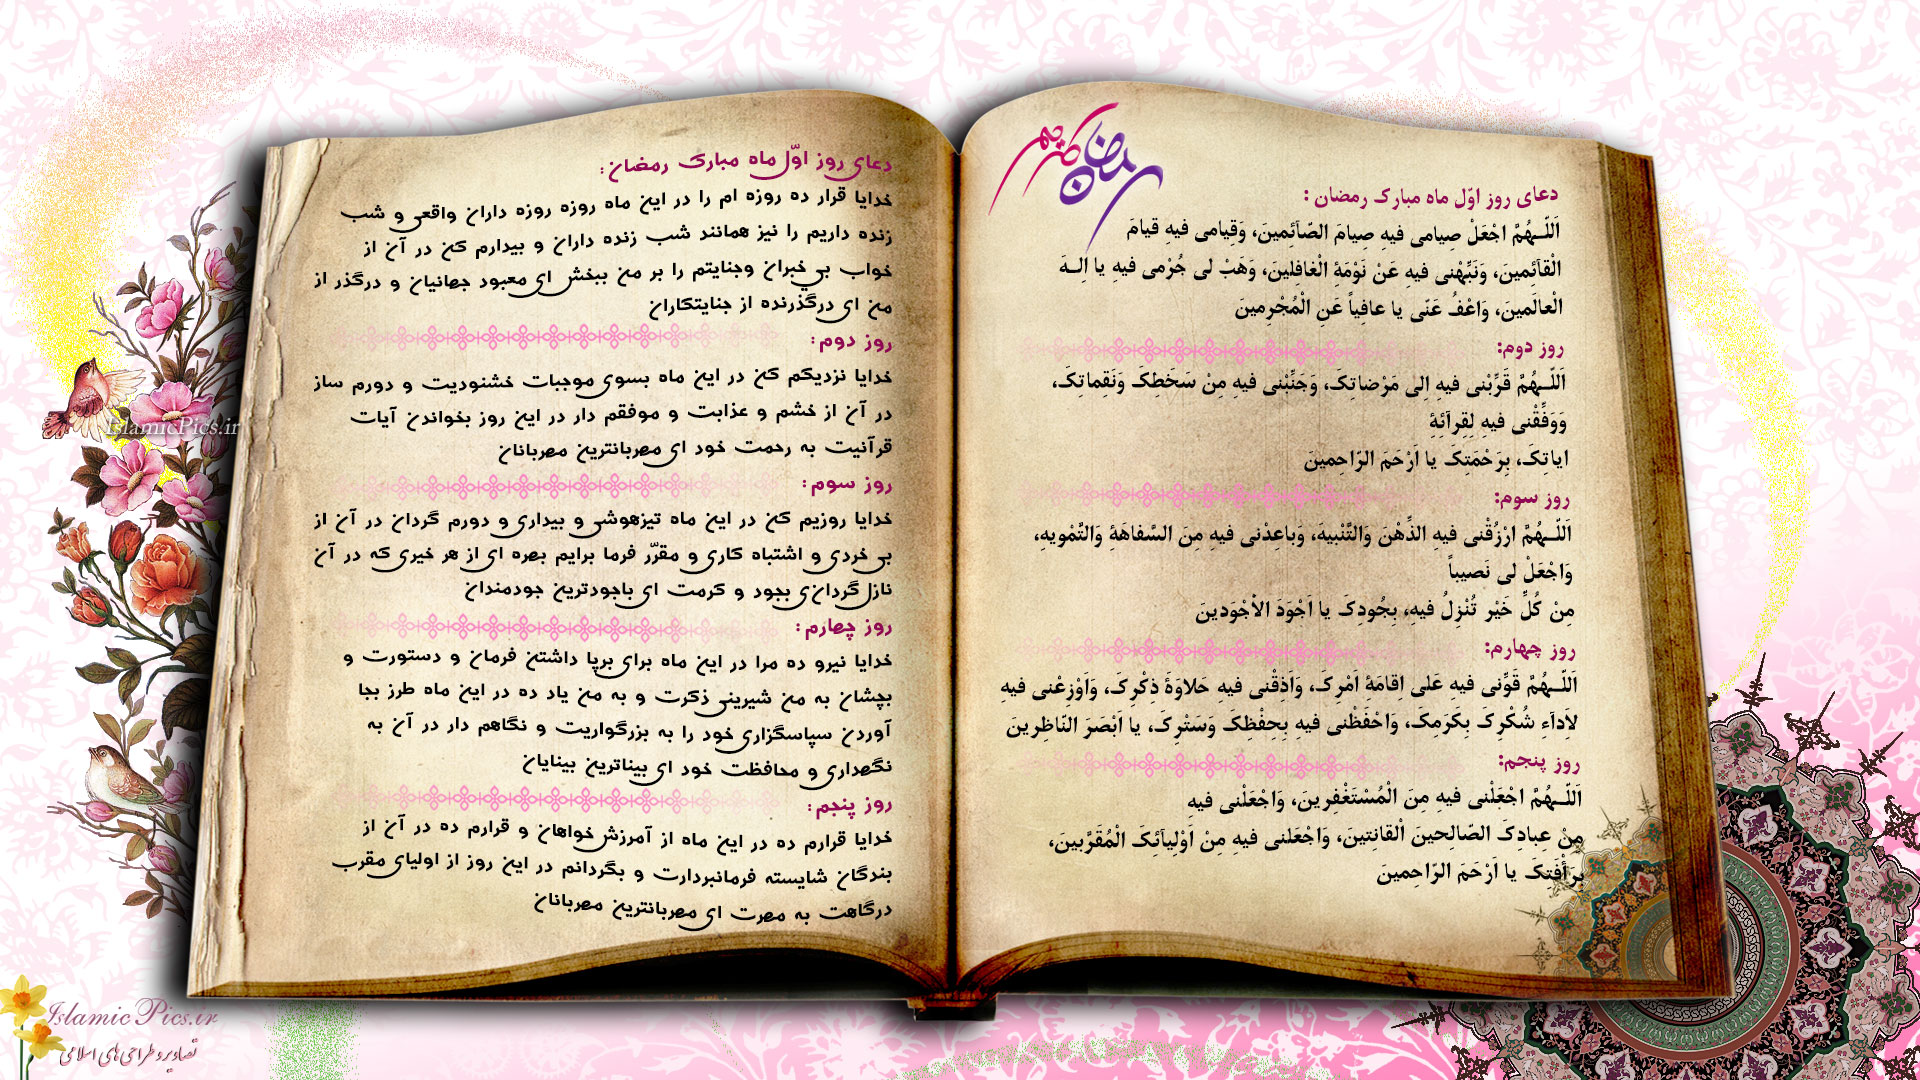 رمضان کریم
دعای روز اوّل ماه مبارک رمضان :
اَللّـهُمَّ اجْعَلْ صِیامی فیهِ صِیامَ الصّآئِمینَ، وَقِیامی فیهِ قیامَ
الْقآئِمینَ، وَنَبِّهْنی فیهِ عَنْ نَوْمَةِ الْغافِلینَ، وَهَبْ لی جُرْمی فیهِ یا اِلـهَ
الْعالَمینَ، وَاعْفُ عَنّی یا عافِیاً عَنِ الْمُجْرِمینَ
روز دوم:
اَللّـهُمَّ قَرِّبْنی فیهِ اِلی مَرْضاتِکَ، وَجَنِّبْنی فیهِ مِنْ سَخَطِکَ وَنَقِماتِکَ،
وَوَفِّقْنی فیهِ لِقِرآئَةِ
ایاتِکَ، بِرَحْمَتِکَ یا اَرْحَمَ الرّاحِمینَ
روز سوم:
اَللّـهُمَّ ارْزُقْنی فیهِ الذِّهْنَ وَالتَّنْبیهَ، وَباعِدْنی فیهِ مِنَ السَّفاهَةِ وَالتَّمْویهِ،
وَاجْعَلْ لی نَصیباً
مِنْ کُلِّ خَیْر تُنْزِلُ فیهِ، بِجُودِکَ یا اَجْوَدَ الاَْجْوَدینَ
روز چهارم:
اَللّـهُمَّ قَوِّنی فیهِ عَلی اِقامَةِ اَمْرِکَ، وَاَذِقْنی فیهِ حَلاوَةَ ذِکْرِکَ، وَاَوْزِعْنی فیهِ
لاَِدآءِ شُکْرِکَ بِکَرَمِکَ، وَاحْفَظْنی فیهِ بِحِفْظِکَ وَسَتْرِکَ، یا اَبْصَرَ النّاظِرینَ
روز پنجم:
اَللّـهُمَّ اجْعَلْنی فیهِ مِنَ الْمُسْتَغْفِرینَ، وَاجْعَلْنی فیهِ
مِنْ عِبادِکَ الصّالِحینَ اْلقانِتینَ، وَاجْعَلنی فیهِ مِنْ اَوْلِیآئِکَ الْمُقَرَّبینَ،
بِرَأْفَتِکَ یا اَرْحَمَ الرّاحِمینَ
دعای روز اوّل ماه مبارک رمضان:
خدایا قرار ده روزه ام را در این ماه روزه روزه داران واقعی و شب
زنده داریم را نیز همانند شب زنده داران و بیدارم کن در آن از
خواب بی خبران وجنایتم را بر من ببخش ای معبود جهانیان و درگذر از
من ای درگذرنده از جنایتکاران
روز دوم:
خدایا نزدیکم کن در این ماه بسوی موجبات خشنودیت و دورم ساز
در آن از خشم و عذابت و موفقم دار در این روز بخواندن آیات
قرآنیت به رحمت خود ای مهربانترین مهربانان
روز سوم:
خدایا روزیم کن در این ماه تیزهوشی و بیداری و دورم گردان در آن از
بی خردی و اشتباه کاری و مقرّر فرما برایم بهره ای از هر خیری که در آن
نازل گردانی بجود و کرمت ای باجودترین جودمندان
روز چهارم:
خدایا نیرو ده مرا در این ماه برای برپا داشتن فرمان و دستورت و
بچشان به من شیرینی ذکرت و به من یاد ده در این ماه طرز بجا
آوردن سپاسگزاری خود را به بزرگواریت و نگاهم دار در آن به
نگهداری و محافظت خود ای بیناترین بینایان
روز پنجم:
خدایا قرارم ده در این ماه از آمرزش خواهان و قرارم ده در آن از
بندگان شایسته فرمانبردارت و بگردانم در این روز از اولیای مقرب
درگاهت به مهرت ای مهربانترین مهربانان
IslamicPics.ir
IslamicPics.ir
تصاویر و طراحی های اسلامی